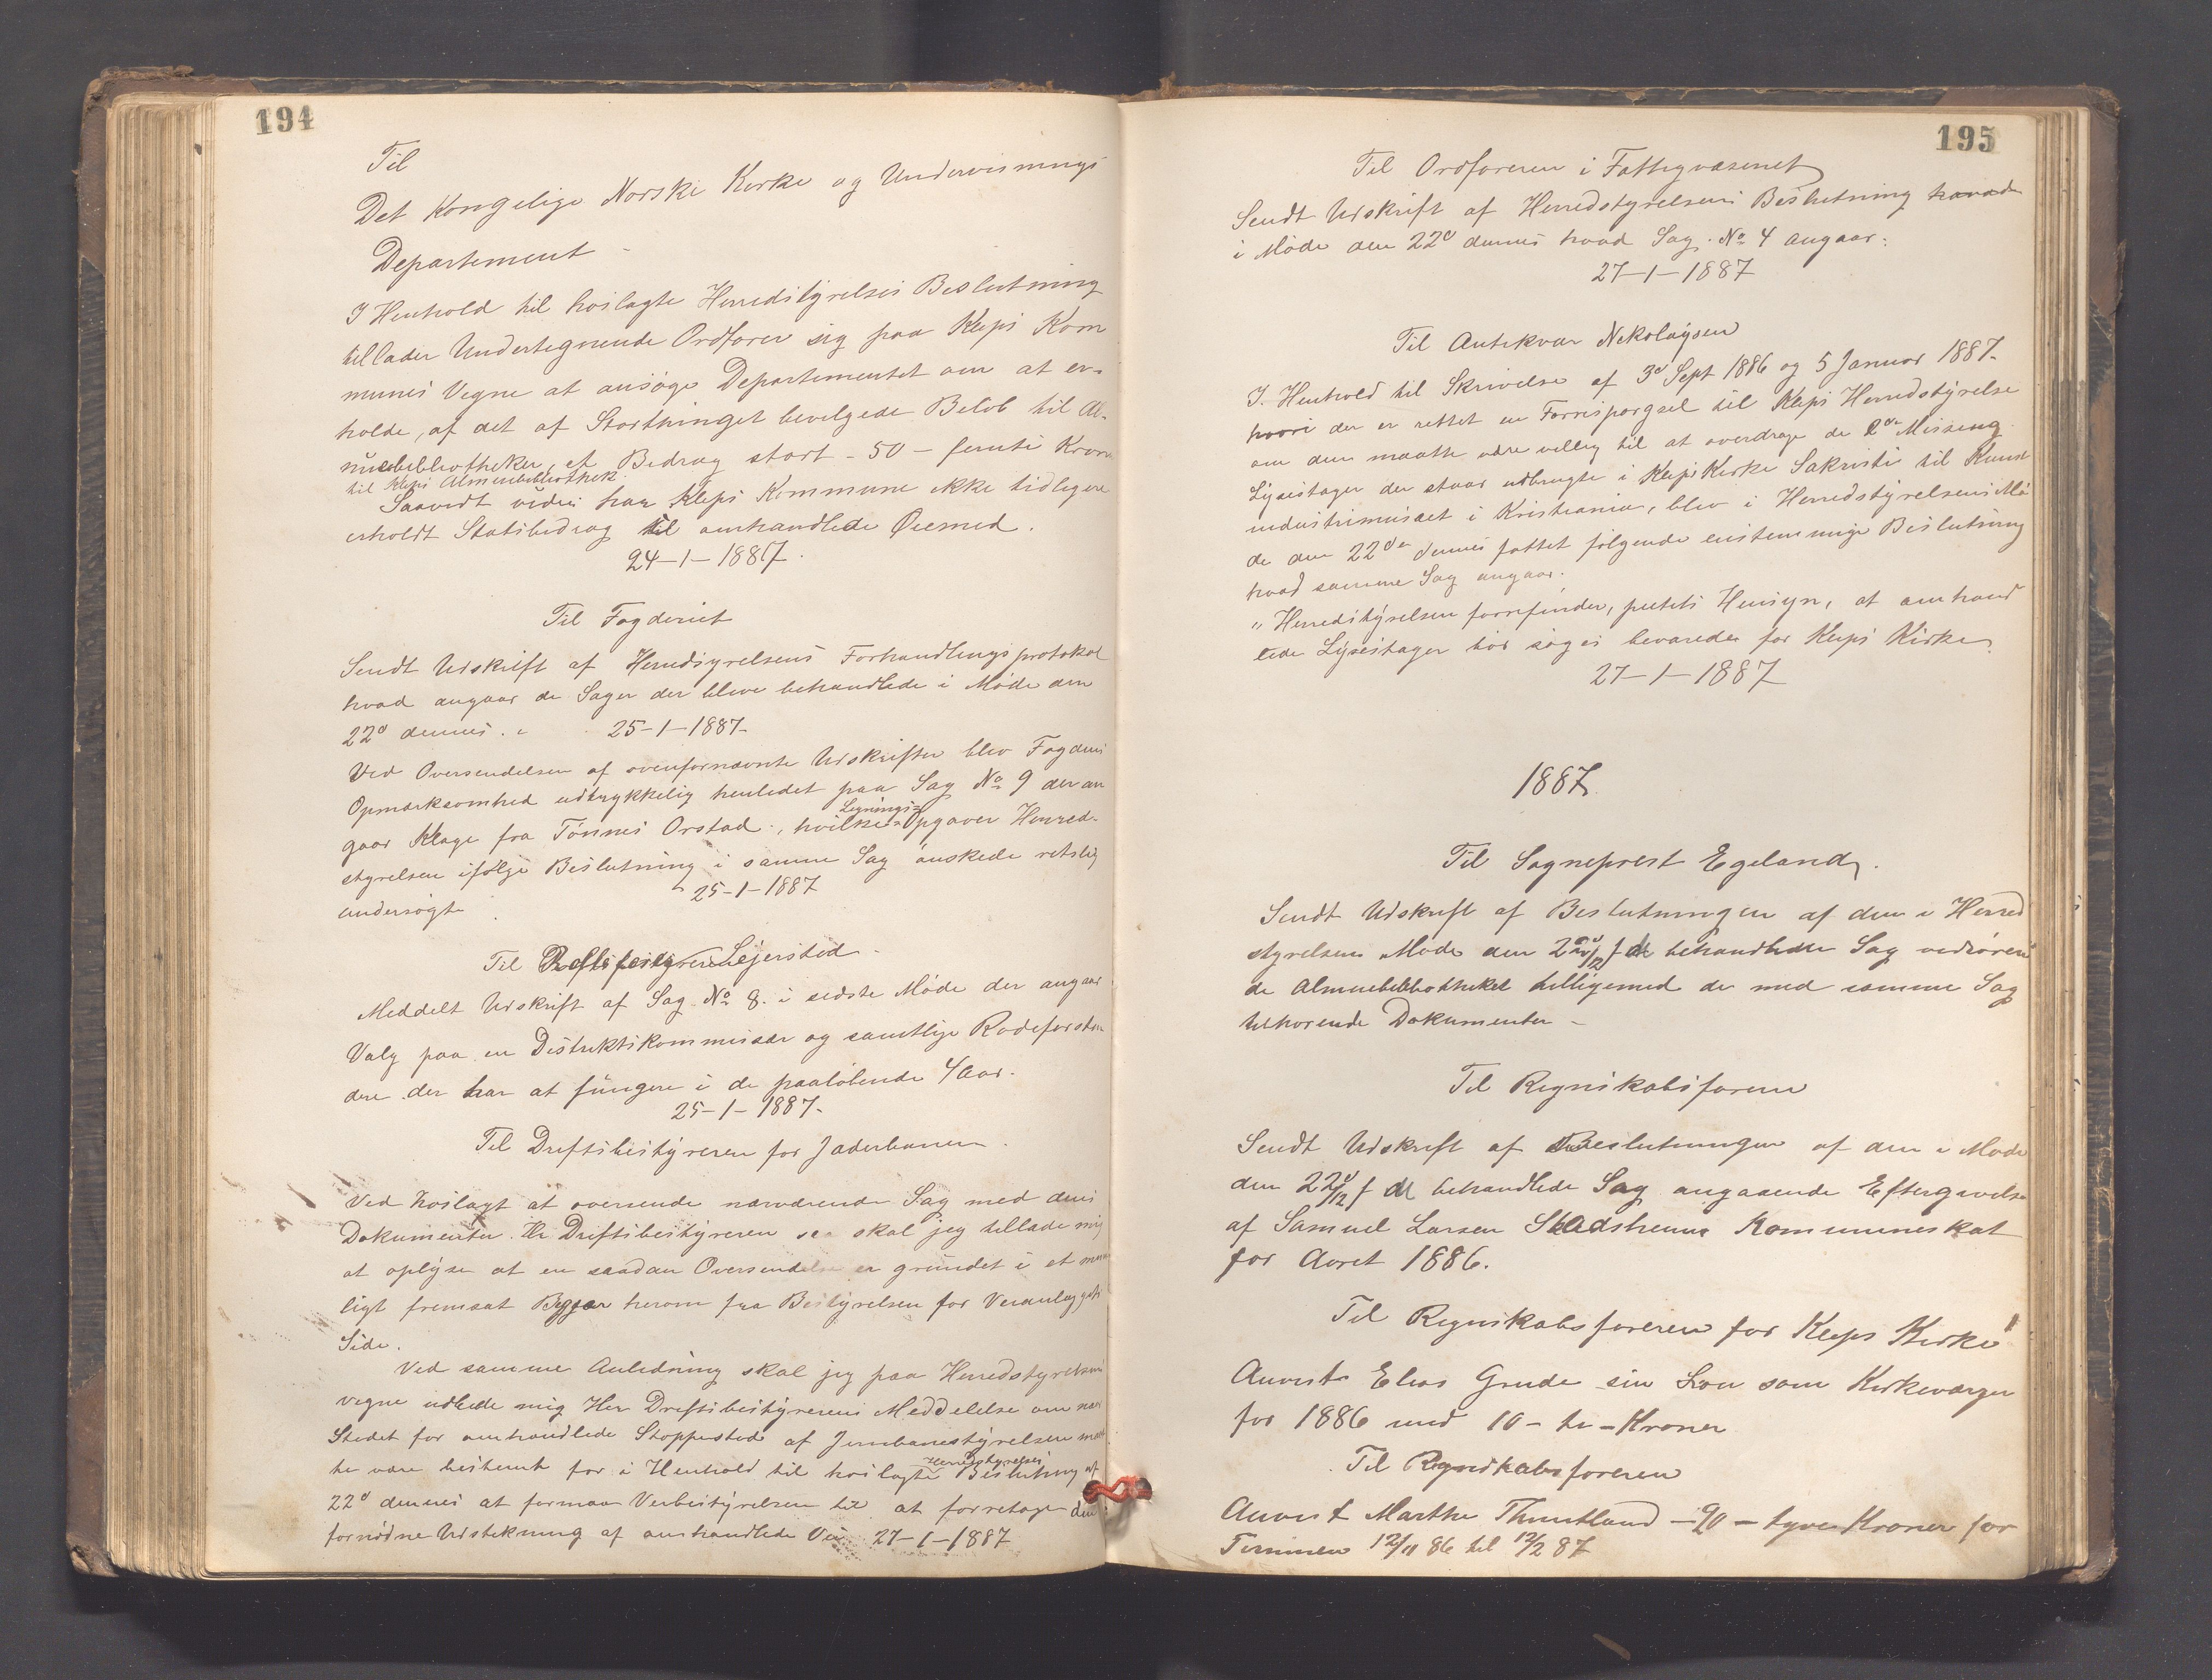 194
Til
Det Kongelige Norske Kirke og Undervisnings
Departement
I Henhold til hoslagte Herredstyrelses Beslutning
tillader Undertegnende Ordfører sig paa Kleps Kom
munes Vegne at ansøge Departementet om at er-
holde, af det af Storthinget bevilgede Beløb til Al-
muebibliotheker, et Bidrag stort - 50 - femti Kroner
til Kleps Almuebibliothek
Saavidt vides har Kleps Kommune ikke tidligere
erholdt Statsbidrag til omhandlede Øiemed.
24-1-1887.
Til Fogderiet
Sendt Udskrift af Herredsyrelsens Forhandlingsprotokol
hvad angaar de Sager der bleve behandlede i Møde den
22d dennes. 25-1-1887-
Ved Oversendelsen af ovenfornævnte Udskrifter blev Fogdens
Opmærksomhed udtrykkelig henledet paa Sag No 9 der an
gaar Klage fra Tønnes Orstad, hvilke Ligningsopgaver Herred-
styrelsen ifølge Beslutning i samme Sag ønskede retslig
undersøgte
25-1-1887
Til Lejerstod
Meddelt Udskrift af Sag No 8. i sidste Møde der angaar
Valg paa en Distriktskommissær og samtlige Rodeforstan
dere der har at fungere i de paaløbende 4 Aar.
25-1-1887-
Til Driftsbestyreren for Jæderbanen.
Ved hoslagt at oversende nærværende Sag med dens
Dokumenter Hr Driftsbestyreren saa skal jeg tillade mig
at oplyse at en saadan Oversendelse er grundet i et mund
ligt fremsat Begjær herom fra Bestyrelsen for Veranlæggets
Side.
Ved samme Anledning skal jeg paa Herredstyrelsens
vegne udbede mig Her Driftsbestyrerens Meddelelse om naar
Stedet for omhandlede Stoppested af Jernbanestyrelsen maat
te være bestemt for i Henhold til hoslagte Herredstyrelses Beslutning af
22d dennes at formaa Veibestyrelsen til at forretage den
fornødne Udstikning af omhandlede Vei 27-1-1887
195
Til Ordføreren i Fattigvæsenet
Sendt Udskrift af Herredstyrelsens Beslutning hvad
i Møde den 22d dennes hvad Sag No 4 angaar:
27-1-1887
Til Antikvar Nikolaysen
I Henhold til Skrivelse af 3d Sept 1886 og 5 Januar 1887-
hvori der er rettet en Forrispørgsel til Kleps Herredstyrelse
om den maatte være villig til at overdrage de 2de Missing
Lysestager der staar udbrugte i Kleps Kirke Sakristi til Kunst
industrimuseet i Kristiania, blev i Herredstyrelsens Mø
de den 22de dennes fattet følgende enstemmige Beslutning
hvad samme Sag angaar:
"Herredstyrelsen forrefinder, pietets Hensyn, at omhand
lede Lysestager bør søges bevarede for Kleps Kirke
27-1-1887
1887.
Til Sogneprest Egeland.
Sendt Udskrift af Beslutningen af den i Herred
styrelsens Møde den 22d/12 f A behandlede Sag vedrøren
de Almuebibliotheket tilligemed de med samme Sag
tilhørende Dokumenter -
Til Regnskabsføreren
Sendt Udskrift af Beslutningen af den i Møde
den 22d/12 f A behandlede Sag angaaende Eftergivelse
af Samuel Larsen Stadsheims Kommuneskat
for Aaret 1886.
Til Regnskabsføreren for Kleps Kirke
Anvist Elias Grude sin Løn som Kirkeværger
for 1886 med 10 - ti - Kroner
Til Regnskabsføreren
Anvist Marthe Thuetland - 20 - tyve Kroner for
Terminen 12/11 86 til 12/2 87